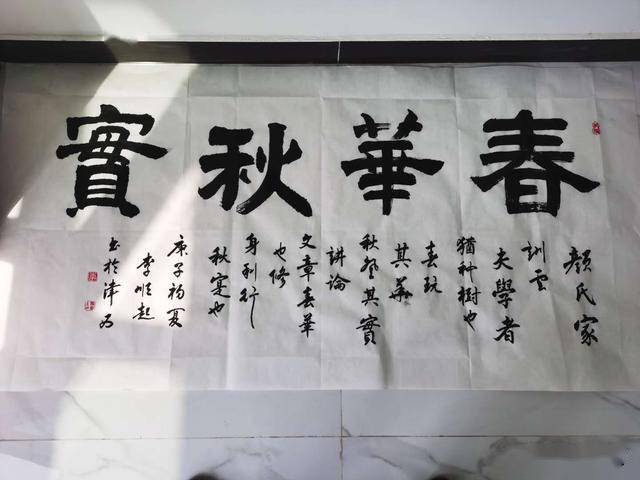 春華秋實
顏氏家
訓雲
夫學者
猶种樹也
春玩
其華
秋登其實
講論
文章春華
也修
身利行
秋寔也
庚子初夏
李順起
书於津门